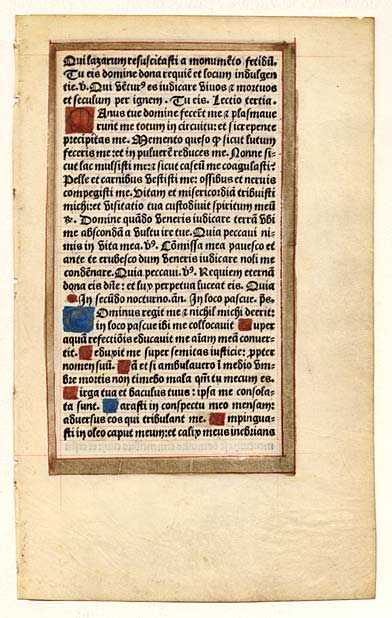 Qui lazarum resuscitasti a monumẽto fetidũ.
Tu eis domine dona requiẽ et locum indulgen
tie. v. Qui vẽturꝰ es iudicare viuos ⁊ mortuos
et seculum per ignem. Tu eis. Lectio tertia.
MAnus tue domine fecerũt me ⁊ plasmaue
runt me totum in circuitu: et sic repente
precipitas me. Memento queso ꝙ sicut lutum
feceris me: et in puluerẽ reduces me. Nonne si
cut lac mulsisti me: ⁊ sicut caseũ me coagulasti?
Pelle et carnibus vestisti me: ossibus et neruis
compegisti me. Vitam et misericordiã tribuisti
michi: et visitatio tua custodiuit spiritum meũ
℟. Domine quãdo veneris iudicare terrã vbi
me abscondã a vultu ire tue. Quia peccaui ni-
mis in vita mea. vꝰ. Cõmissa mea pauesco et
ante te erubesco dum veneris iudicare noli me
condẽnare. Quia peccaui. vꝰ. Requiem eternã
dona eis dñe: et lux perpetua luceat eis. Quia
In secũdo nocturno. añ. In loco pascue. p̃s.
DOminus regit me ⁊ nichil michi deerit:
in loco pascue ibi me collocauit Super
aquã refectiõis educauit me aĩam meã conuer-
tit. Deduxit me super semitas iusticie: ꝓpter
nomen suũ. Nã et si ambulauero ĩ medio vm-
bre mortis non timebo mala qm̃ tu mecum es.
Virga tua et baculus tuus: ipsa me consola-
ta sunt. Parasti in conspectu meo mensam:
aduersus eos qui tribulant me. Impingua-
sti in oleo caput meum: et calix meus inebrians